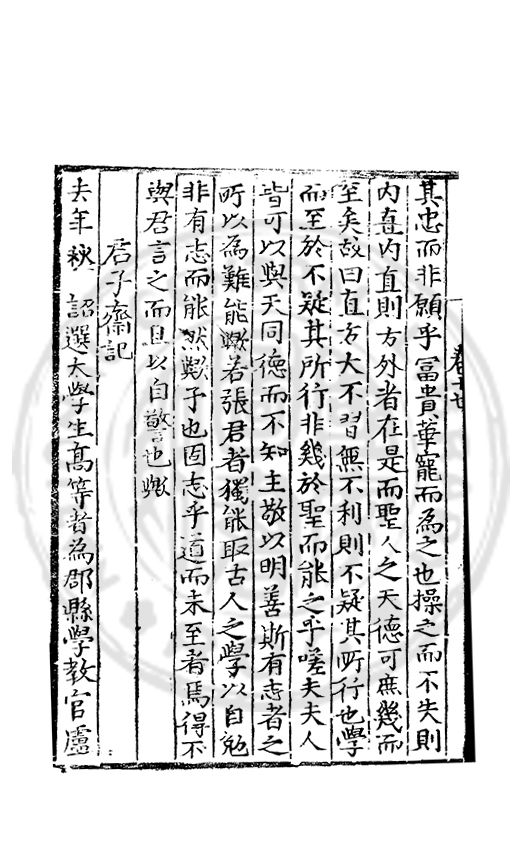 其忠而非願乎冨貴華寵而為之也操之而不失則
内直内直則方外者在是而聖人之天德可庶幾而
至矣故曰直方大不習無不利則不疑其所行也學
而至於不疑其所行非幾於聖而能之乎嗟夫夫人
皆可以與天同德而不知主敬以明善斯有志者之
所以為難能歟若張君者獨能取古人之學以自勉
非有志而能然歟予也固志乎道而未至者焉得不
與君言之而且以自警也歟
君子齋記
去年秋 詔選太學生髙等者為郡縣學教官廬